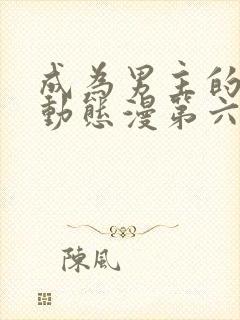 成為男主的
動態漫第六
陳風